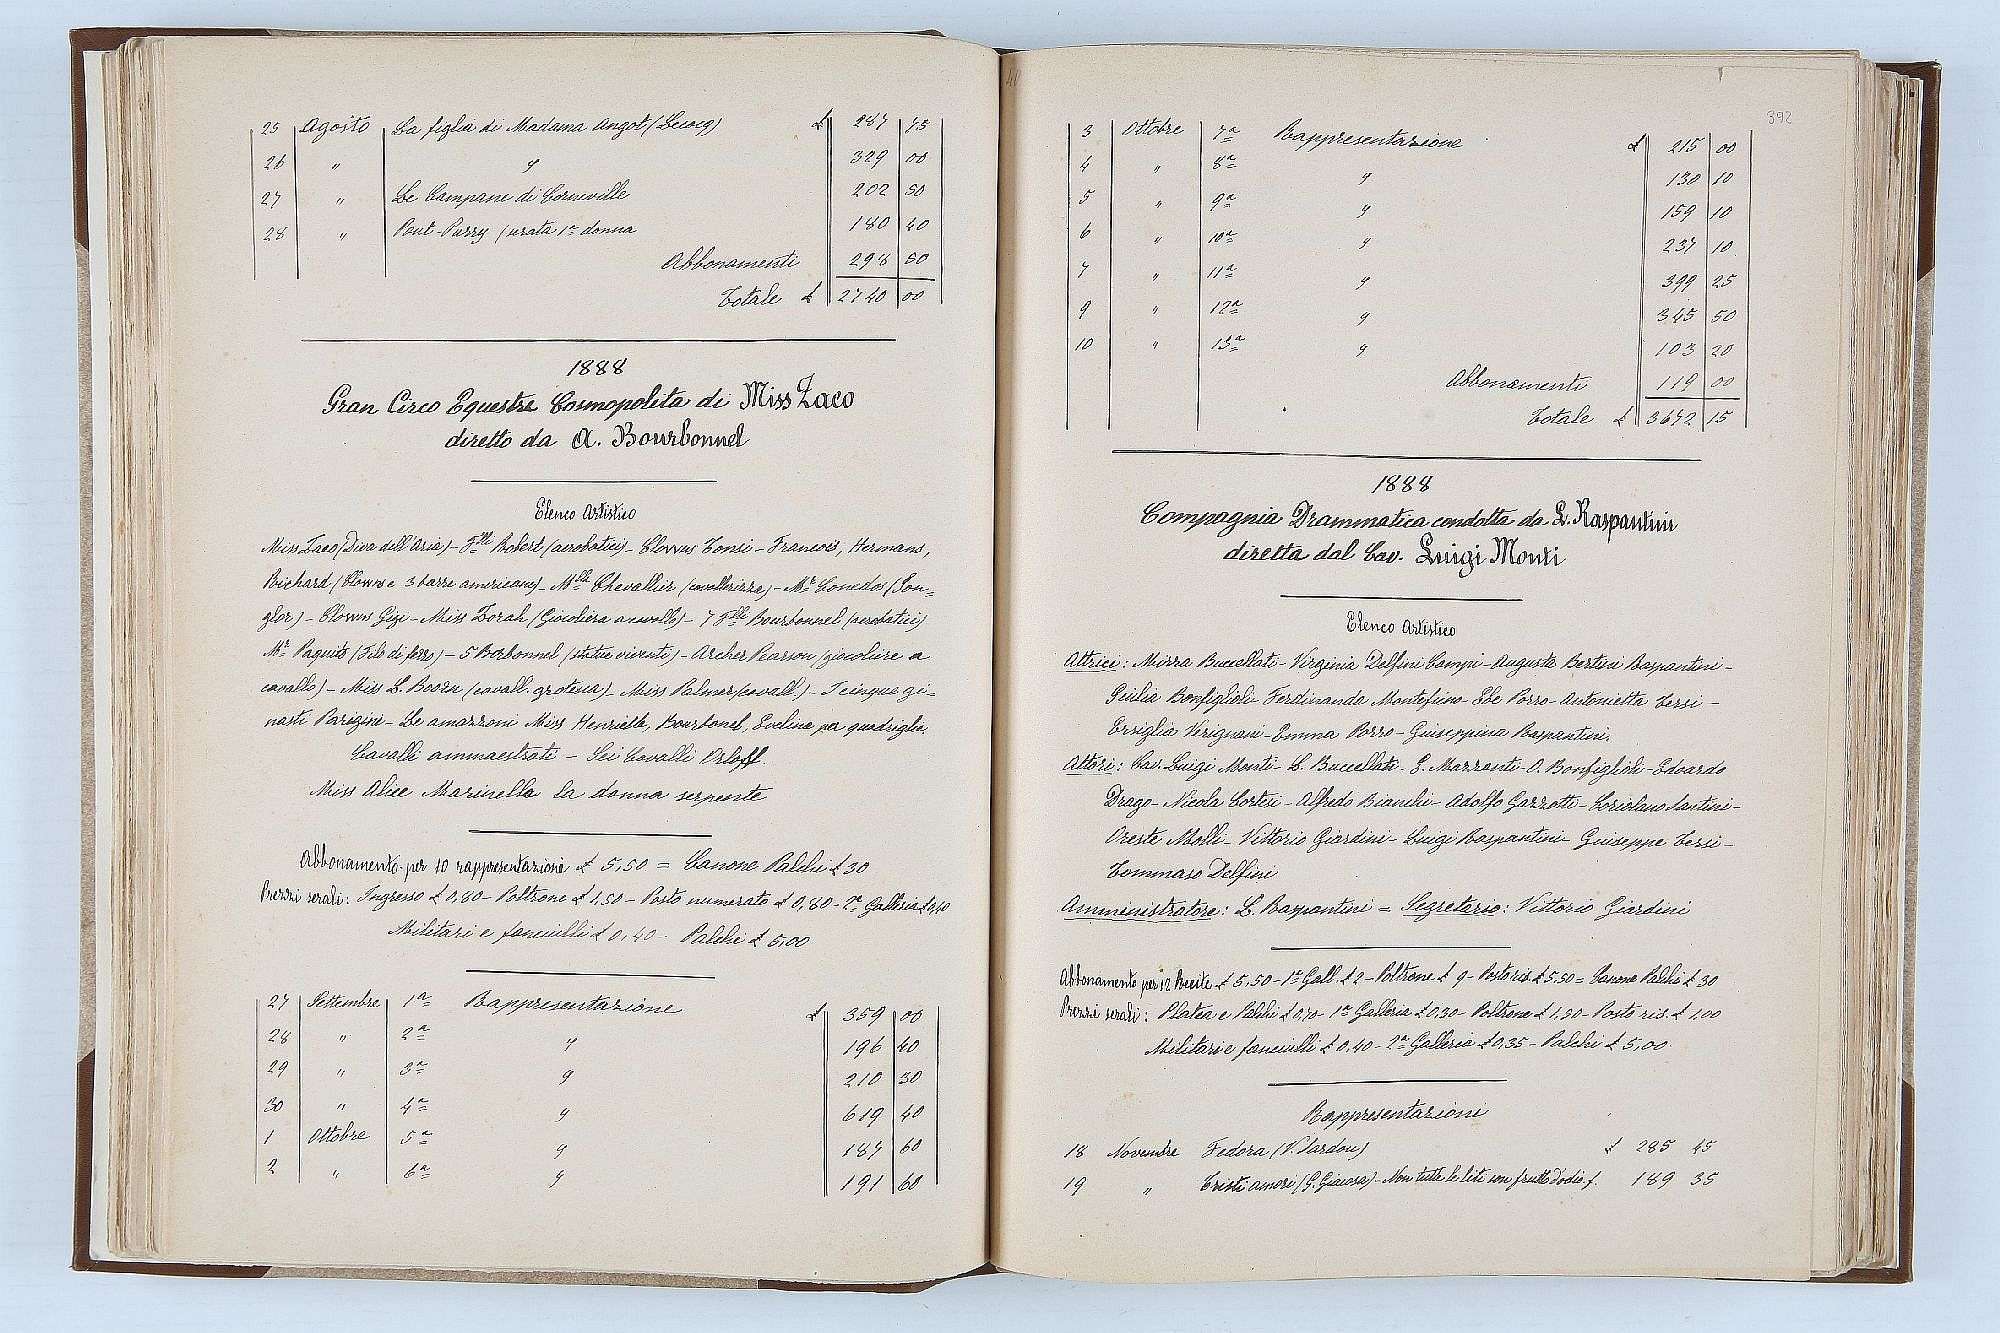 25 Agosto La figlia di Madama Angot (Lecocq) £ 287 75
26 " " 329 00
27 " Le Campane di Corneville 202 50
28 " Pout-Purry (serata 1ª donna 180 40
Abbonamenti 298 50
Totale £ 2740 00
1888
Gran Circo Equestre Cosmopolita di Miss Zaeo
diretto da A. Bourbonnel
Elenco Artistico
Miss Zaeo (Diva dell'Aria) - Flli Robert (acrobatici) - Clowns Tonsi - Francois, Hermans,
Richard (Clowns e 3 barre americane) - Mlle Chevallier (cavallerizza) - Mr Comedos (Jon=
glor) - Clowns Gigi - Miss Zorah (Giocoliera a cavallo) - 7 Flli Bourbonnel (acrobatici)
Mr Paquito (Filo di ferro) - 5 Borbonnel (statue viventi) - Archer Pearson (giocoliere a
cavallo) - Miss L. (cavall. grottesca) - Miss Palmer (cavall.) - I cinque gi=
nasti Parigini - Le amazzoni Miss Henriette, Bourbonel, Eveline, per quadriglie
Cavalli ammaestrati - Sei Cavalli Orloff.
Miss Alice Marinella la donna serpente
Abbonamento per 10 rappresentazione £ 5,50 = Canone Palchi £ 30
Prezzi serali: Ingresso £ 0,80 - Poltrone £ 1,50 - Posto numerato £ 0,80 - 2ª Galleria £ 0,40
Militari e fanciulli £ 0,40 - Palchi £ 5,00
27 Settembre 1ª Rappresentazione £ 359 00
28 " 2ª " 196 40
29 " 3ª " 210 30
30 " 4ª " 619 40
1 Ottobre 5ª " 187 60
2 " 6ª " 191 60
392
3 Ottobre 7ª Rappresentazione £ 215 00
4 " 8ª " 130 10
5 " 9ª " 159 10
6 " 10ª " 237 10
7 " 11ª " 399 25
9 " 12ª " 345 50
10 " 13ª " 103 20
Abbonamenti 119 00
Totale £ 3672 15
1888
Compagnia Drammatica condotta da L. Raspantini
diretta dal Cav. Luigi Monti
Elenco Artistico
Attrici: Mirra Buccellati - Virginia Delfini Campi - Augusta Bertini Raspantini -
Giulia Bonfiglioli - Ferdinanda Montefusco - Ebe Porro - Antonietta Tersi -
Ersiglia Verignani - Emma Porro - Giuseppina Raspantini.
Attori: Cav. Luigi Monti - L. Buccellati - E. Mazzanti - O. Bonfiglioli - Edoardo
Drago - Nicola Cortesi - Alfredo Bianchi - Adolfo Gazzotti - Coriolano Santini -
Oreste Molli - Vittorio Giardini - Luigi Raspantini - Giuseppe Tersi -
Tommaso Delfini
Amministratore: L. Raspantini = Segretario: Vittorio Giardini
Abbonamento per 12 Recite £ 5,50 - 1ª Gall. £ 2 - Poltrone £ 9 - Posto ris. £ 5,50 = Canone Palchi £ 30
Prezzi serali: Platea e Palchi £ 0,70 - 1ª Galleria £ 0,30 - Poltrone £ 1,20 - Posto ris. £ 1,00
Militari e fanciulli £ 0,40 - 2ª Galleria £ 0,35 - Palchi £ 5,00
Rappresentazioni
18 Novembre Fedora (V. Sardou) £ 285 45
19 " Tristi amori (G. Giacosa) - Non tutte le liti son frutto d'odio f. 189 35